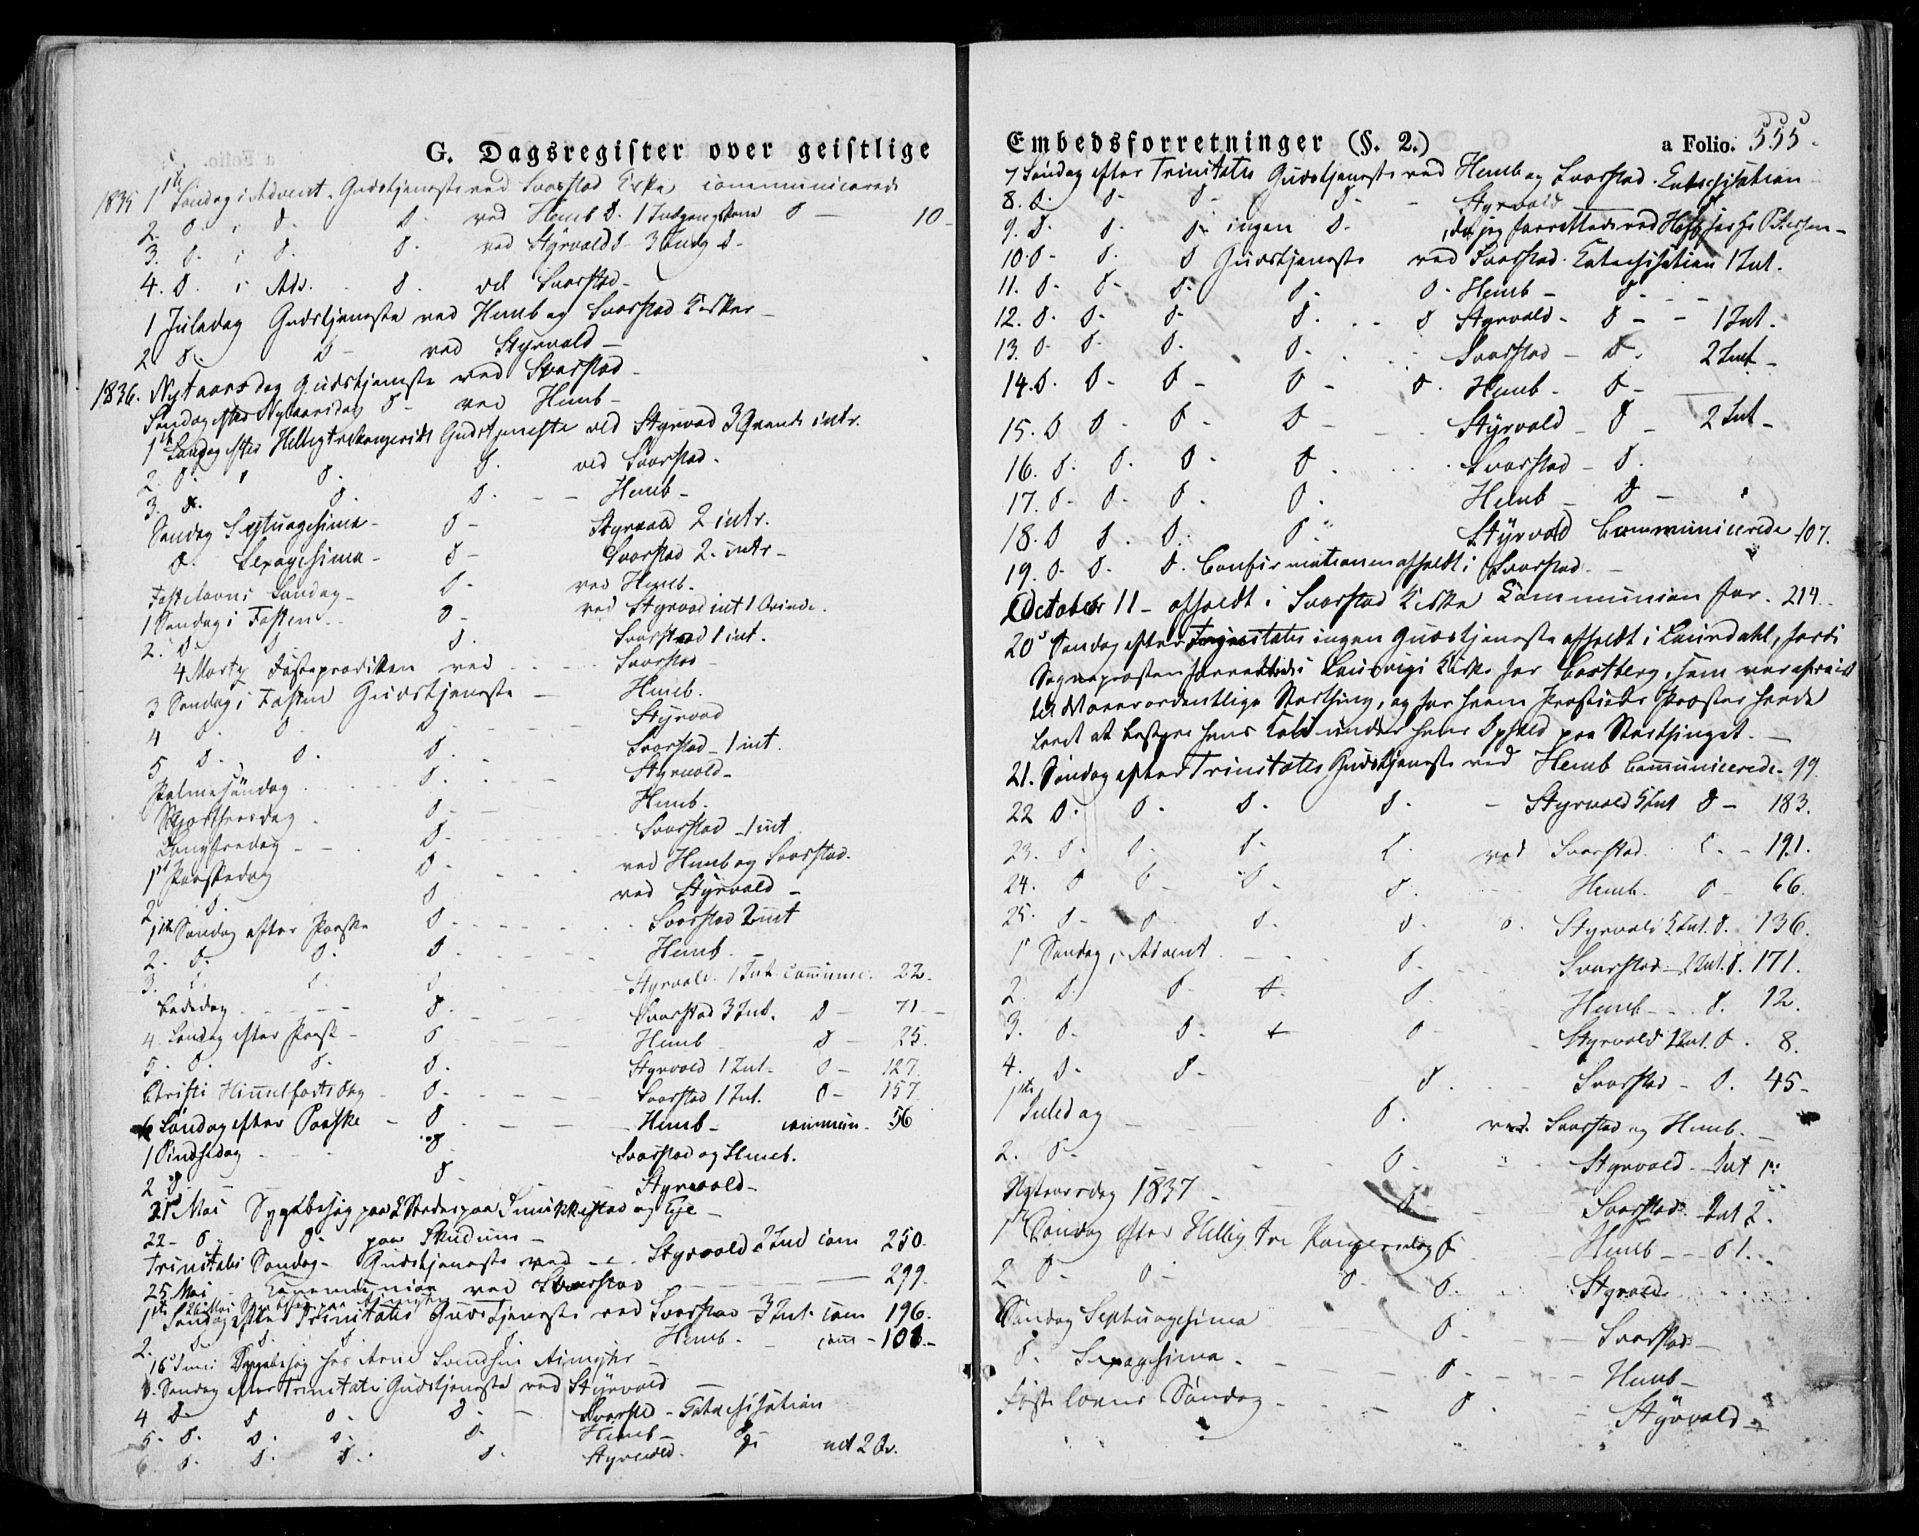 G. Dagsregister over geistlige
1835 1ste Søndag i Advent. Gudstjeneste ved Svarstad Kirke communicerede
2. D. i D. D. ved Hemb D. 1 Indgangskone D — 10 -
3. D. i D. D. ved Styrvold D - 3 Indg D.
4. D. i Adv. D. ved Svarstad -
1 Juledag Gudstjeneste ved Hemb og Svarstad Kirker -
2 D. D - ved Styrvold -
1836. Nytaarsdag Gudstjeneste ved Svarstad -
Søndag efter Nytaarsdag D - ved Hemb -
1ste Søndag efter Helligtrekongersdag Gudstjeneste ved Styrvold 3 Qvinde intr.
2. D. D. D. ved Svarstad.
3. D. D. D. - - Hemb -
Søndag Septuagesima - D - Styrvold 2 intr.
D. Sexagesima - D - Svarstad 2. intr -
Fastelavns Søndag - D. ved Hemb.
1 Søndag i Fasten D - ved Styrvold int 1 Qvinde.
2. D D D. Svarstad 1 int.
4 Marty Fasteprædiken ved Svarstad -
3 Søndag i Fasten Gudstjeneste - Hemb.
4 D. D. D - Styrvold
5 D. D. D. Svarstad - 1 int.
Palmesøndag D. - Styrvold -
Skjærthorsdag D - Hemb.
Langfredag - - D. Svarstad - 1 int
1ste Paaskedag D - ved Hemb og Svarstad.
2. D. D ved Styrvold -
1ste Søndag efter Paaske D - Svarstad 2 int
2. D. D. D. Hemb. -
3. D. D. D Styrvold. 1 Int communi. 22.
Bededag D. Svarstad 3 Int. D - 71 -
4. Søndag efter Paask - D Hemb D - 25.
5. D. D. D. Styrvold 1 Int. D - 127.
Christi Himmelfarts Dag - D. Svarstad 1 Int. D - 157
6 Søndag efter Paaske - D Hemb - commun. 56
1 Pindsedag D Svarstad og Hemb.
2 D. D Styrvold -
21 Mai Sygebesøg paa 2 Steder paa og Eje -
22 - D - D. paa Skudum -
Trinitatis Søndag - Gudstjeneste ved - Styrvold 2 Ind com 250.
25 Mai - Communion ved Svarstad — 299.
1ste Søndag efter Trinitatis Gudstjeneste ved Svarstad 3 Int. com 196.
2. D. D. D. D. Hemb - com - 101 -
16 Juni Sygebesøg hos Arne Svendsen -
3. Søndag efter Trinitatis Gudstjeneste ved Styrvold -
4 D D D - D - - Svarstd - Catechisation
5. D. D. D. D. Hemb -
6. D. D. D. D. Styrvold. int 2 Qv.
Embedsforretninger (§. 2.) a Folio. 555.
7 Søndag efter Trinitatis Gudstjeneste ved Hemb og Svarstad. Catechisation
8. D. D - D - D - - Styrvold
9. D. D. D - ingen D. , da jeg forrettede ved
10. D - D. D Gudstjeneste ved Svarstad Catechisation 1 Int.
11. D - D - D. D. D. Hemb - D. - -
12. D. D. D. D. - - D Styrvold - D - - 1 Int.
13. D. D. D. D. Svarstad - D. 2 Int -
14. D. D - D - D - D. Hemb - D -
15. D D D D - Styrvold - D - 2 Int -
16. D. D. D - D. Svarstad - D.
17. D - D. D. D. Hemb - D -
18. D D. D. D " Styrvold Communicerede 107.
19. D. D. D. Confirmationen afholdt i Svarstad. -
October 11 - afholdt i Svarstad Kirke Communion for. 214.
20de Søndag efter Trinitatis ingen Gudstjeneste afholdt i Laurdahl, fordi
Sognepræsten forrettede i Laurvigs Kirke for Castberg, som var afreist
til det overordentlige Storthing, og for hvem Provstiets Præster havde
lovet at bestyre hans Kald under hans Ophold paa Storthinget. -
21. Søndag efter Trinitatis Gudstjeneste ved Hemb Communicerede 99.
22 D. D. D. D. - Styrvold 5 Int D - 183.
23. D. D. D. D. ved Svarstad. D. - 191.
24. D D - D - D. Hemb. D - 66.
25. D - D. D. D D. Styrvold 5 Int. D. 136.
1ste Søndag i Advent D. Svarstad - 1 Int. D. 171.
2. D. D. D. D Hemb - - D. 12.
3. D. D - D - Styrvold 1 Int. D. 8.
4. D - D - D. Svarstad - D. 45 -
1ste Juledag D. ved Svarstad og Hemb. -
2. D. D - Styrvold - Int 1.
Nytaarsdag 1837 - D - Svarstad - Int 2.
1ste Søndag efter Hellig tre Kongersdag D Hemb - - D 1. -
2. D - D - D D. Styrvold
Søndag Septuagesima D - Svarstad -
D. Sexagesima. D - Hemb -
Fastelavns Søndag D - Styrvold -